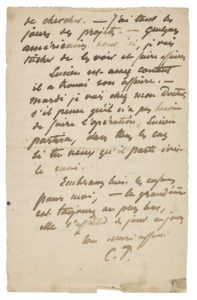 de chercher. — J'ai tous les
jours des projets. — Quelques
américains sont ici, je vais
tâcher de les voir et faire affaire.
Lucien est assez content
il a trouvé son affaire. —
mardi je vais chez mon Docteur,
s'il pense qu'il n'a pas besoin
de faire l'opération, Lucien
partira, dans tous les cas
si tu veux qu'il parte écris-
le moi.
Embrasse bien les enfants
pour moi, — la grand'mère
est toujours au plus bas,
elle s'affaiblit de jour en jour
ton mari affné.
C. P.